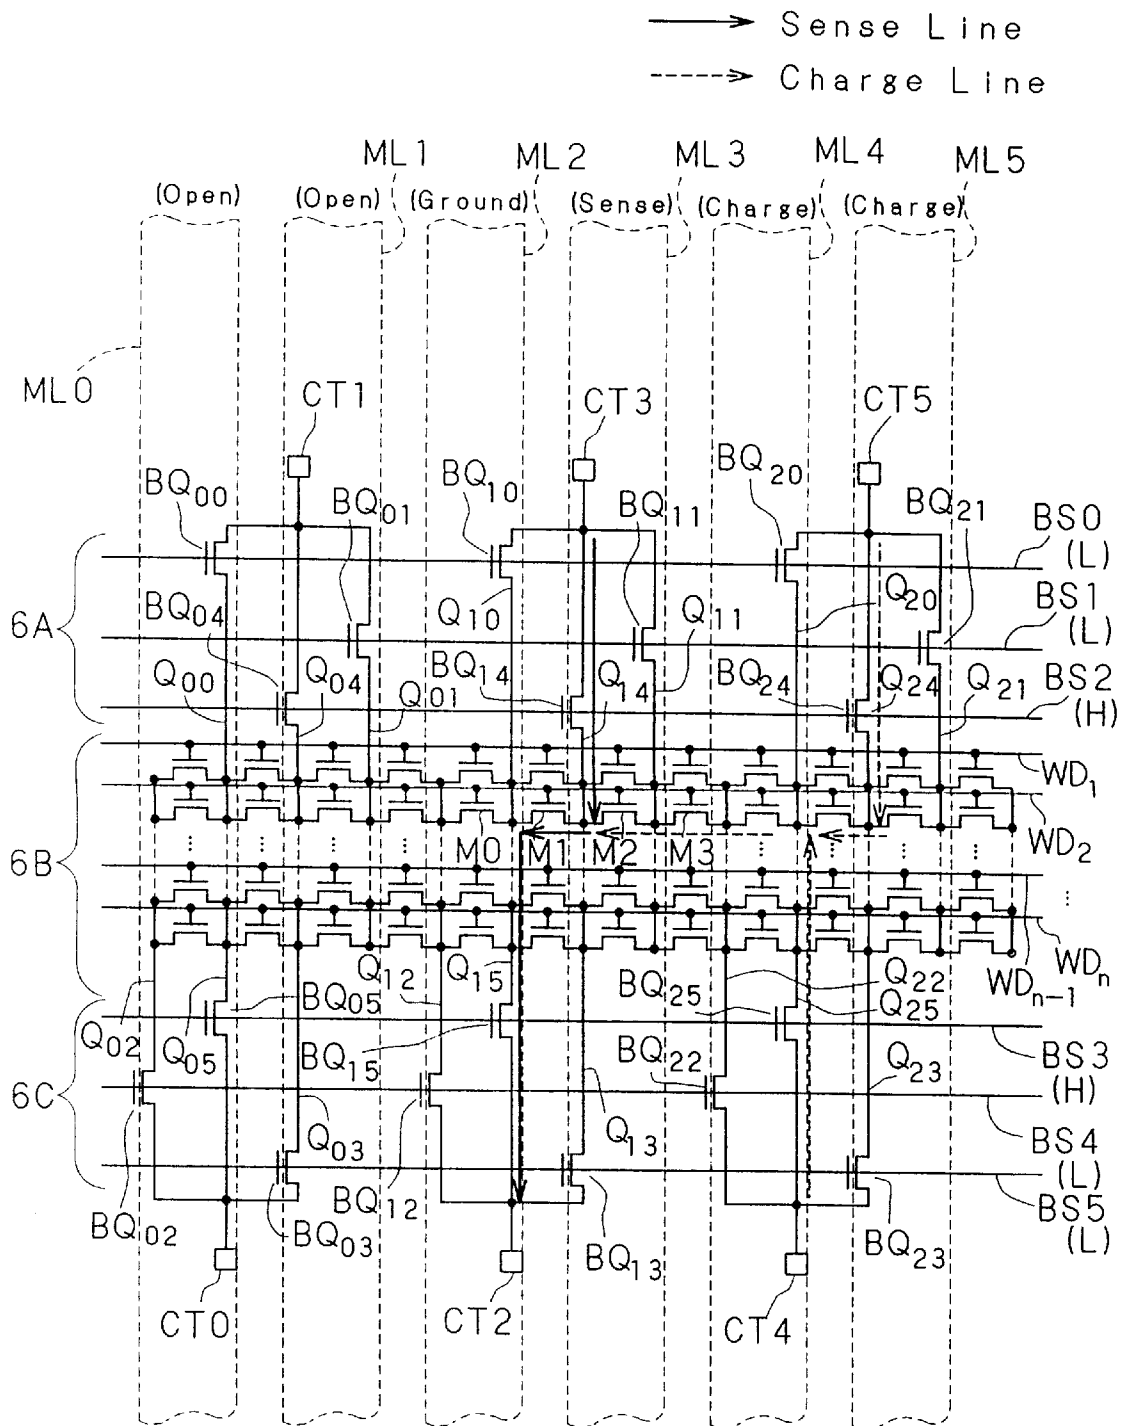 Sense Line
Charge Line
ML1 ML2 ML3 ML4 ML5
(Open) (Open) (Ground) (Sense) (Charge) (Charge)
ML0
CT1 CT3 CT5
BQ00 BQ01 BQ10 BQ11 BQ20 BQ21 BS0
(L)
6A BQ04 Q10 Q11 Q20 BS1
(L)
Q00 Q04 Q01 BQ14 Q14 BQ24 Q24 Q21 BS2
(H)
WD1
6B M0 M1 M2 M3 WD2
⋮ ⋮ ⋮ ⋮ ⋮ ⋮ ...
Q12 Q15 BQ25 Q22 WDn-1 WDn
Q02 Q05 BQ05 BQ15 Q25 BS3
(H)
6C BQ22 Q23
Q03 Q13 BS4
(L)
BQ02 BQ03 BQ12 BQ13 BQ23 BS5
(L)
CT0 CT2 CT4